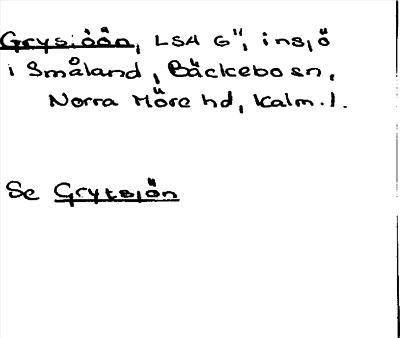 Grysjöön, LSA 6", insjö
i Småland, Bäckebo sn,
Norra Möre hd, Kalm. l.
Se Grytsjön